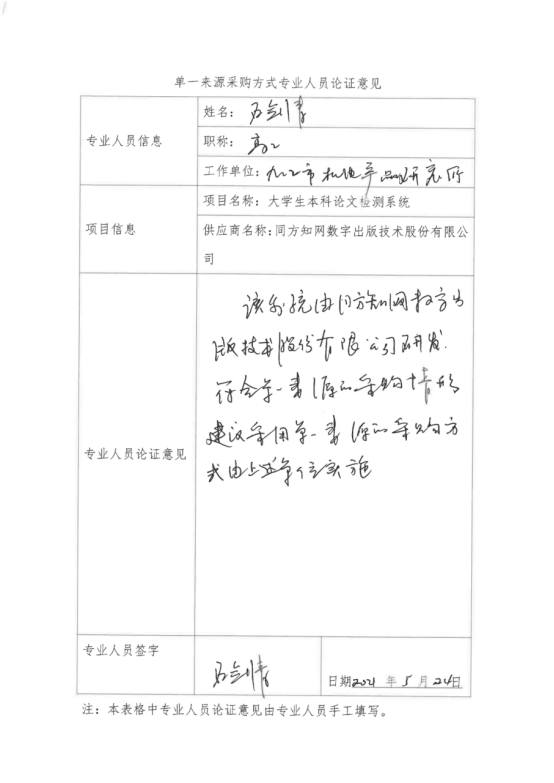 单一来源采购方式专业人员论证意见
专业人员信息
姓名：
职称：高工
工作单位：九江市机电产品研究所
项目信息
项目名称：大学生本科论文检测系统
供应商名称：同方知网数字出版技术股份有限公
司
专业人员论证意见
该系统由同方知网数字出
版技术股份有限公司研发.
符合单一来源的采购情形
建议采用单一来源的采购方
式由上述单位实施
专业人员签字
日期2021年5月24日
注：本表格中专业人员论证意见由专业人员手工填写。